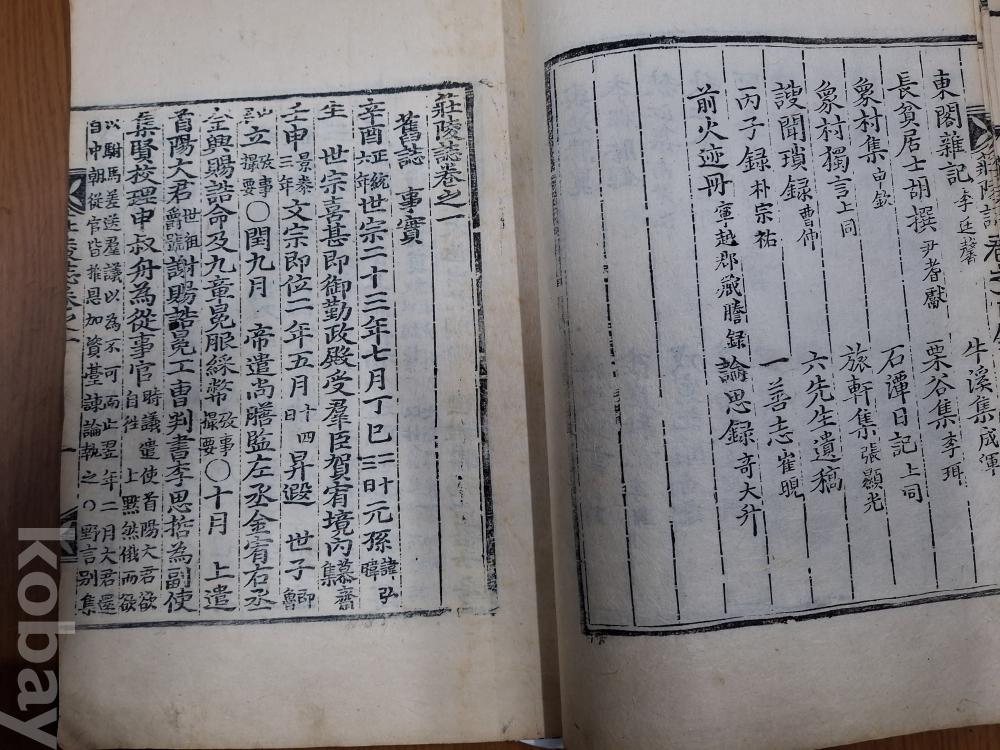 牛溪集成渾
東閣雜記李廷馨
栗谷集李珥
長貧居士胡撰尹耆獻
石潭日記上同
象村集申欽
旅軒集張顯光
象村獨言上同
六先生遺稿
謏聞瑣錄曹伸
一善志崔晛
丙子錄朴宗祐
論思錄奇大升
前火迹冊寧越郡藏謄錄
莊陵誌卷之一
舊誌 事實
辛酉正統六年世宗二十三年七月丁巳二十三日元孫諱弘暐
生 世宗喜甚即御勤政殿受羣臣賀宥境內慕齋集
壬申景泰三年文宗即位二年五月十四日昇遐 世子卽魯山
立攷事撮要〇閏九月 帝遣尚膳監左丞金宥右丞
金興賜誥命及九章冕服綵幣攷事撮要〇十月 上遣
首陽大君世祖爵號謝賜誥冕工曹判書李思哲為副使
集賢校理申叔舟為從事官時議遣使首陽大君欲自往 上黙然俄而欲
以駙馬差送羣議以為不可而止翌年二月大君還
自中朝從官皆推恩加資臺諫論執之〇野言別集
莊陵誌卷之一
一
kobay